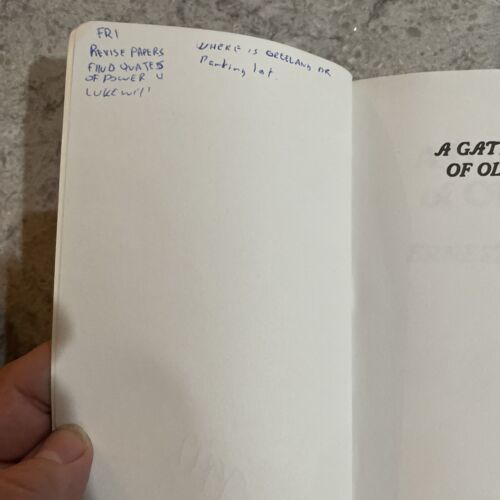 FRI
REVISE PAPERS
FIND QUATES
OF POWER U
LUKE WILL
WHERE IS
Parking lot.
A GAT
OF OL